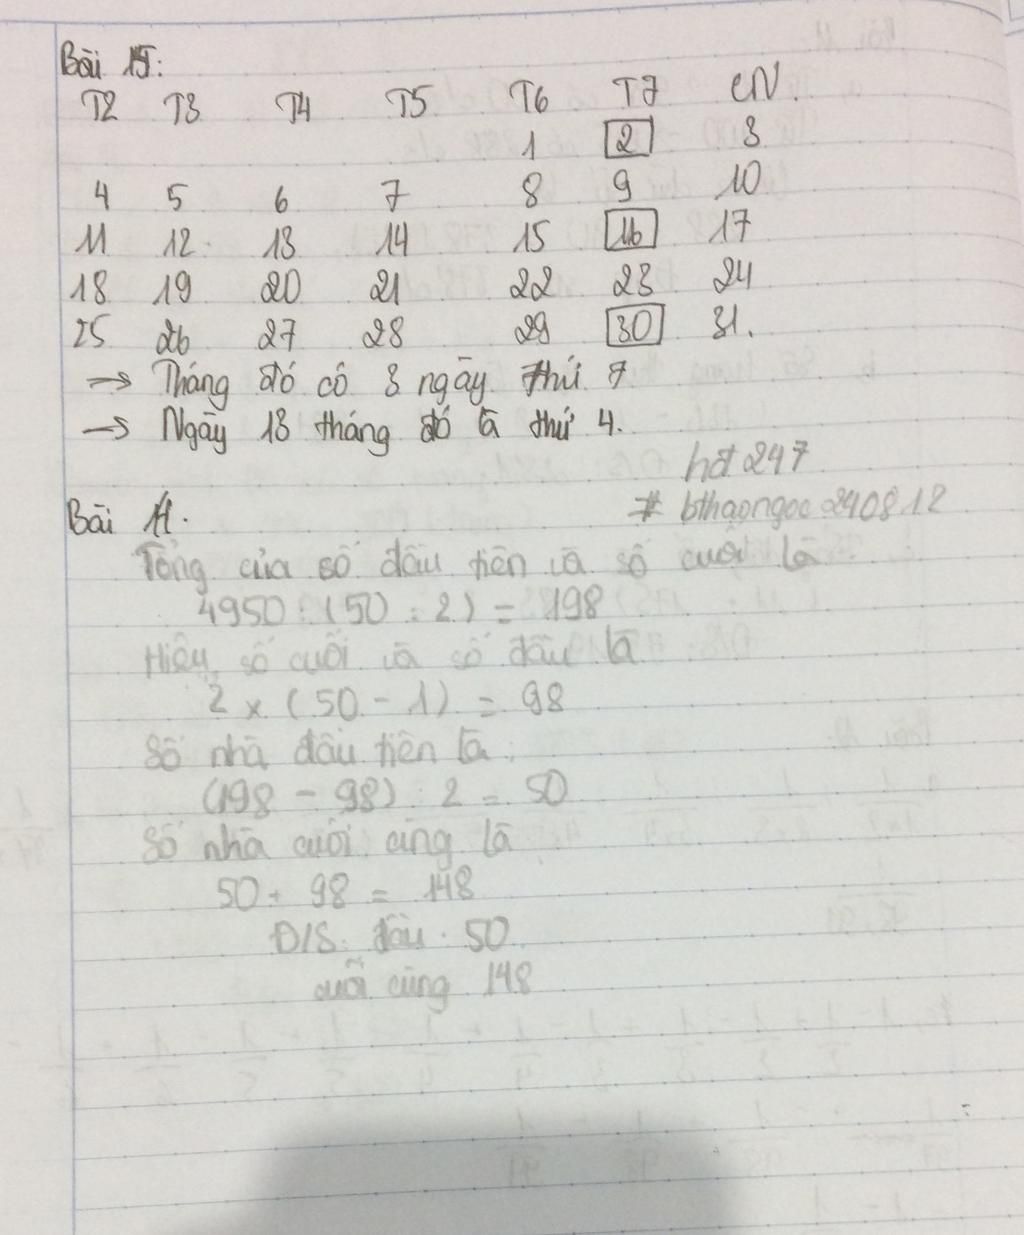 Bài 15:
T2 T3 T4 T5 T6 T7 CN.
1 2 3
4 5 6 7 8 9 10
11 12 13 14 15 16 17
18 19 20 21 22 23 24
25 26 27 28 29 30 31.
→ Tháng đó có 3 ngày thứ 7
→ Ngày 13 tháng đó là thứ 4.
hdt247
# bthaongoc240812
Bài 11.
Tổng của số đầu tiên và số cuối là
4950 : (50 : 2) = 198
Hiệu số cuối và số đầu là
2 x (50 - 1) = 98
Số nhà đầu tiên là:
(198 - 98) : 2 = 50
Số nhà cuối cùng là
50 + 98 = 148
Đ/S: đầu: 50
cuối cùng 148